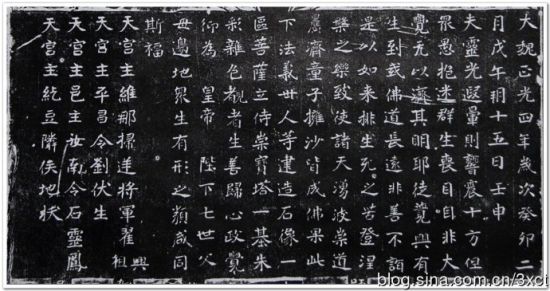 大魏正光四年歲次癸卯二
月戊午朔十五日壬申
夫靈光凝暈則響震十方但
眾愚抱迷群生喪目自非大
覺无以導其明耶徒覺與有
生到或佛道長遠非善不詣
是以如来排生死之苦登涅
槃之樂致使諸天湧波崇道
愚齊童子擁沙皆成佛果此
下法義卅人等建造石像一
區菩薩立侍崇寶塔一基朱
彩雜色覩者生善歸心政覺
仰為 皇帝 陛下七世父
母邊地眾生有形之類咸同
斯福
天宮主維那掃逆將軍翟興祖
天宮主平昌令劉伏生
天宮主邑主汝南令石靈鳳
天宮主紇豆隣俟地拔
blog.sina.com.cn/3xcl